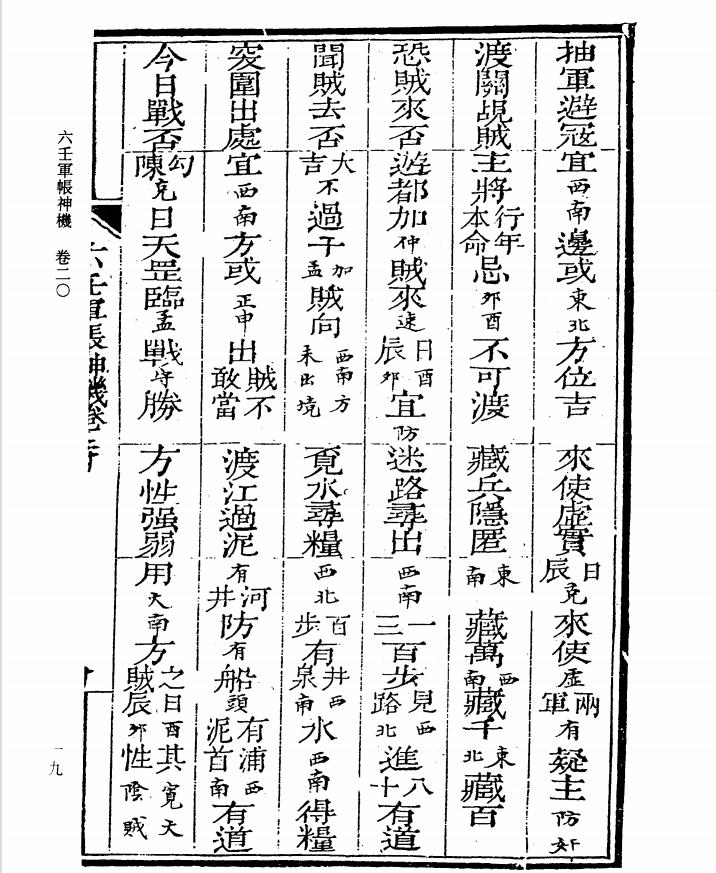 抽軍避寇宜西南邊或東北方位吉 來使虛實日辰克來使虛兩軍有疑主防奸
渡關覘賊主將行年本命忌卯酉不可渡 藏兵隱匿東南藏萬西南藏千東北藏百
恐賊來否遊都加仲賊來速日辰酉卯宜防 迷路尋出西南一三百步見路西北進八十有道
聞賊去否大吉不過干加孟賊向西南方未出境 覓水尋糧西北百步有井泉西南水西南得糧
突圍出處宜西南方或正申出賊不敢當 渡江過泥有河井防有船頭有浦泥首西南有道
今日戰否勾陳克日天罡臨孟戰守勝 方性强弱用天南方之賊日辰酉卯其性寬陰天賊
六壬軍帳神機 卷二〇
一九